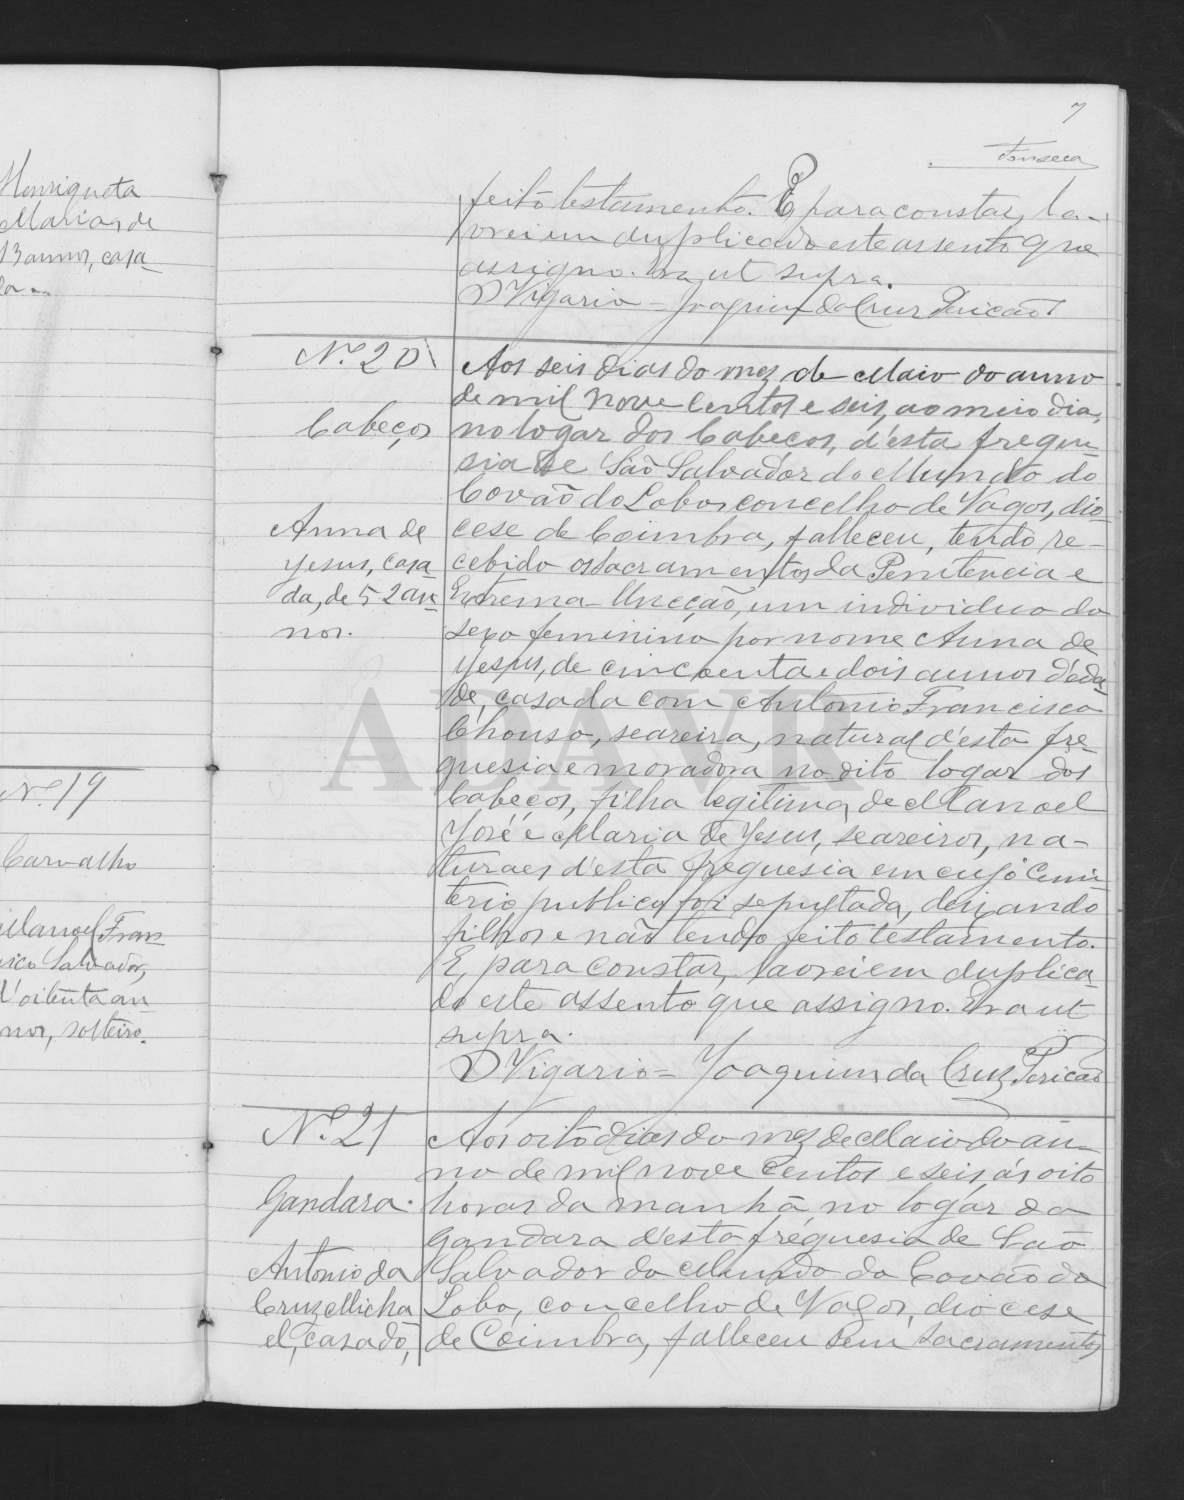 7
Fonseca
feito testamento. E para constar, la-
vrei em duplicado este assento que
assigno. Era ut supra.
O Vigario - Joaquim da Cruz Pericaõ
Nº 20
Cabeços
Anna de
Jesus, casa-
da, de 52 an-
nos.
Aos seis dias do mez de Maio do anno
de mil nove centos e seis, ao meio dia,
no logar dos Cabeços, d'esta fregue-
sia de Saõ Salvador do Mundo do
Covaõ do Lobo, concelho de Vagos, dio-
cese de Coimbra, falleceu, tendo re-
cebido os sacramentos da Penitencia e
Extrema-Uncçaõ, um individuo do
sexo feminino por nome Anna de
Jesus, de cincoenta e dois annos d'eda-
de, casada com Antonio Francisco
Chouso, seareira, natural d'esta fre-
guesia e moradora no dito logar dos
Cabeços, filha legitima de Manoel
José e Maria de Jesus, seareiros, na-
turaes d'esta freguesia em cujo Cemi-
terio publico foi sepultada, deixando
filhos e naõ tendo feito testamento.
E, para constar, lavrei em duplica-
do este assento que assigno. Era ut
supra.
O Vigario = Joaquim da Cruz Pericaõ
Nº 21
Gandara.
Antonio da
Cruz Micha
el, casado,
Aos oito dias do mez de Maio do an-
no de mil nove centos e seis, ás oito
horas da manhã, no logar da
Gandara d'esta freguesia de Saõ
Salvador do Mundo do Covaõ do
Lobo, concelho de Vagos, diocese
de Coimbra, falleceu sem sacramentos
Henriqueta
Maria, de
13 annos, casa-
da
Nº 19
Carvalho
Manoel Fran-
cisco Salvador,
d'oitenta an-
nos, solteiro.
ADAVR